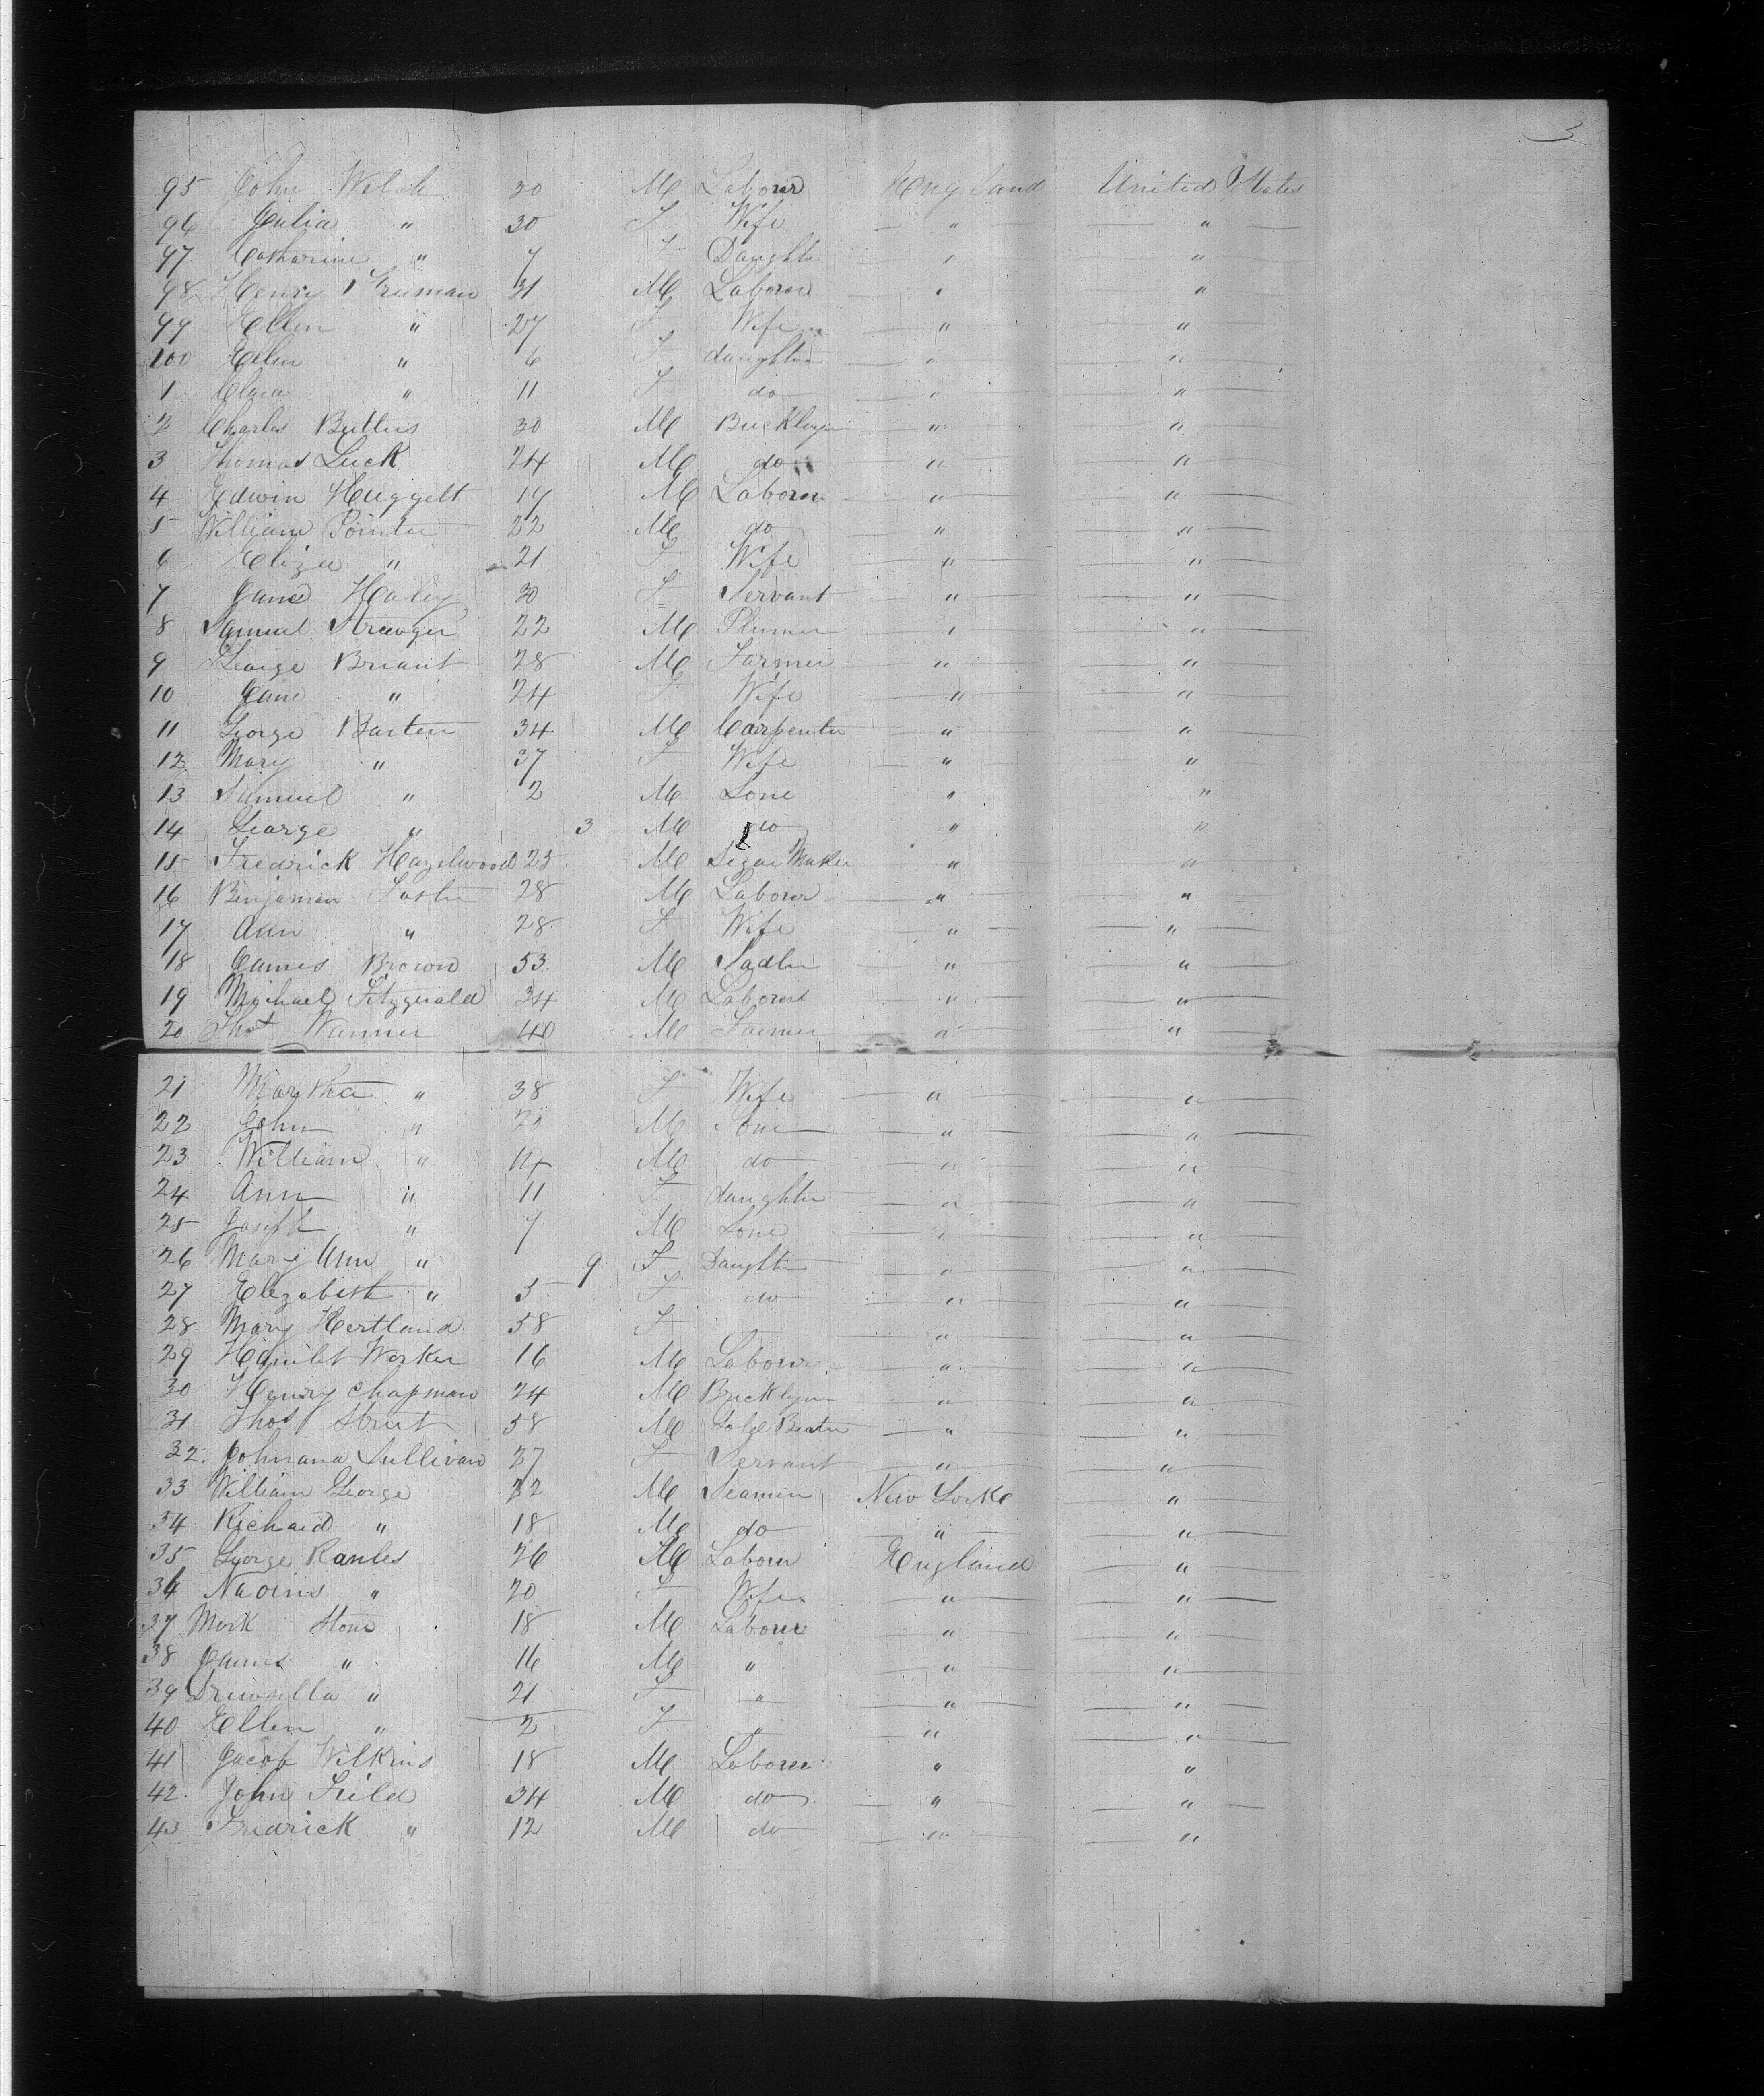 3
95 John Welch 30 M Labour England United States
96 Julia " 30 F Wife " "
97 Catharine " 7 F Daughter " "
98 Henry Truman 31 M Labour " "
99 Ellen " 27 F Wife " "
100 Ellen " 6 F daughter " "
1 Clara " 11 F do " "
2 Charles Buttus 30 M Bricklayer " "
3 Thomas Luck 24 M do " "
4 Edwin Huggett 19 M Labour " "
5 William Pointer 22 M do " "
6 Eliza " 21 F Wife " "
7 Jane Haley 30 F Servant " "
8 Samuel Strawger 22 M Plumer " "
9 George Briant 28 M Farmer " "
10 Jane " 24 F Wife " "
11 George Barten 34 M Carpenter " "
12 Mary " 37 F Wife " "
13 Samuel " 2 M Sone " "
14 George " 3 M do " "
15 Fredrick Hazelwood 25 M Segar Maker " "
16 Benjaman Foster 28 M Labour " "
17 Ann " 28 F Wife " "
18 James Brown 53 M Sadler " "
19 Michael Fitzgerald 34 M Labour " "
20 Thos Warner 40 M Farmer " "
21 Martha " 38 F Wife " "
22 John " 20 M Sone " "
23 William " 14 M do " "
24 Ann " 11 F daughter " "
25 Joseph " 7 M Sone " "
26 Mary Ann " 9 F Daughter " "
27 Elizabeth " 5 F do " "
28 Mary Hertland 58 F " "
29 Hamlet Worker 16 M Labour " "
30 Henry Chapman 24 M Bricklyer " "
31 Thos Strut 58 M Gold Beater " "
32. Johnana Sullivan 27 F Servant " "
33 William George 22 M Seamen New Yorke "
34 Richard " 18 M do " "
35 George Ranles 26 M Labour England "
36 Naoms " 20 F Wife " "
37 Mark Stone 18 M Labour " "
38 James " 16 M " " "
39 Drewsella " 21 F " " "
40 Ellen " 2 F " " "
41 Jacob Wilkins 18 M Labour " "
42. John Field 34 M do " "
43 Fredrick " 12 M do " "